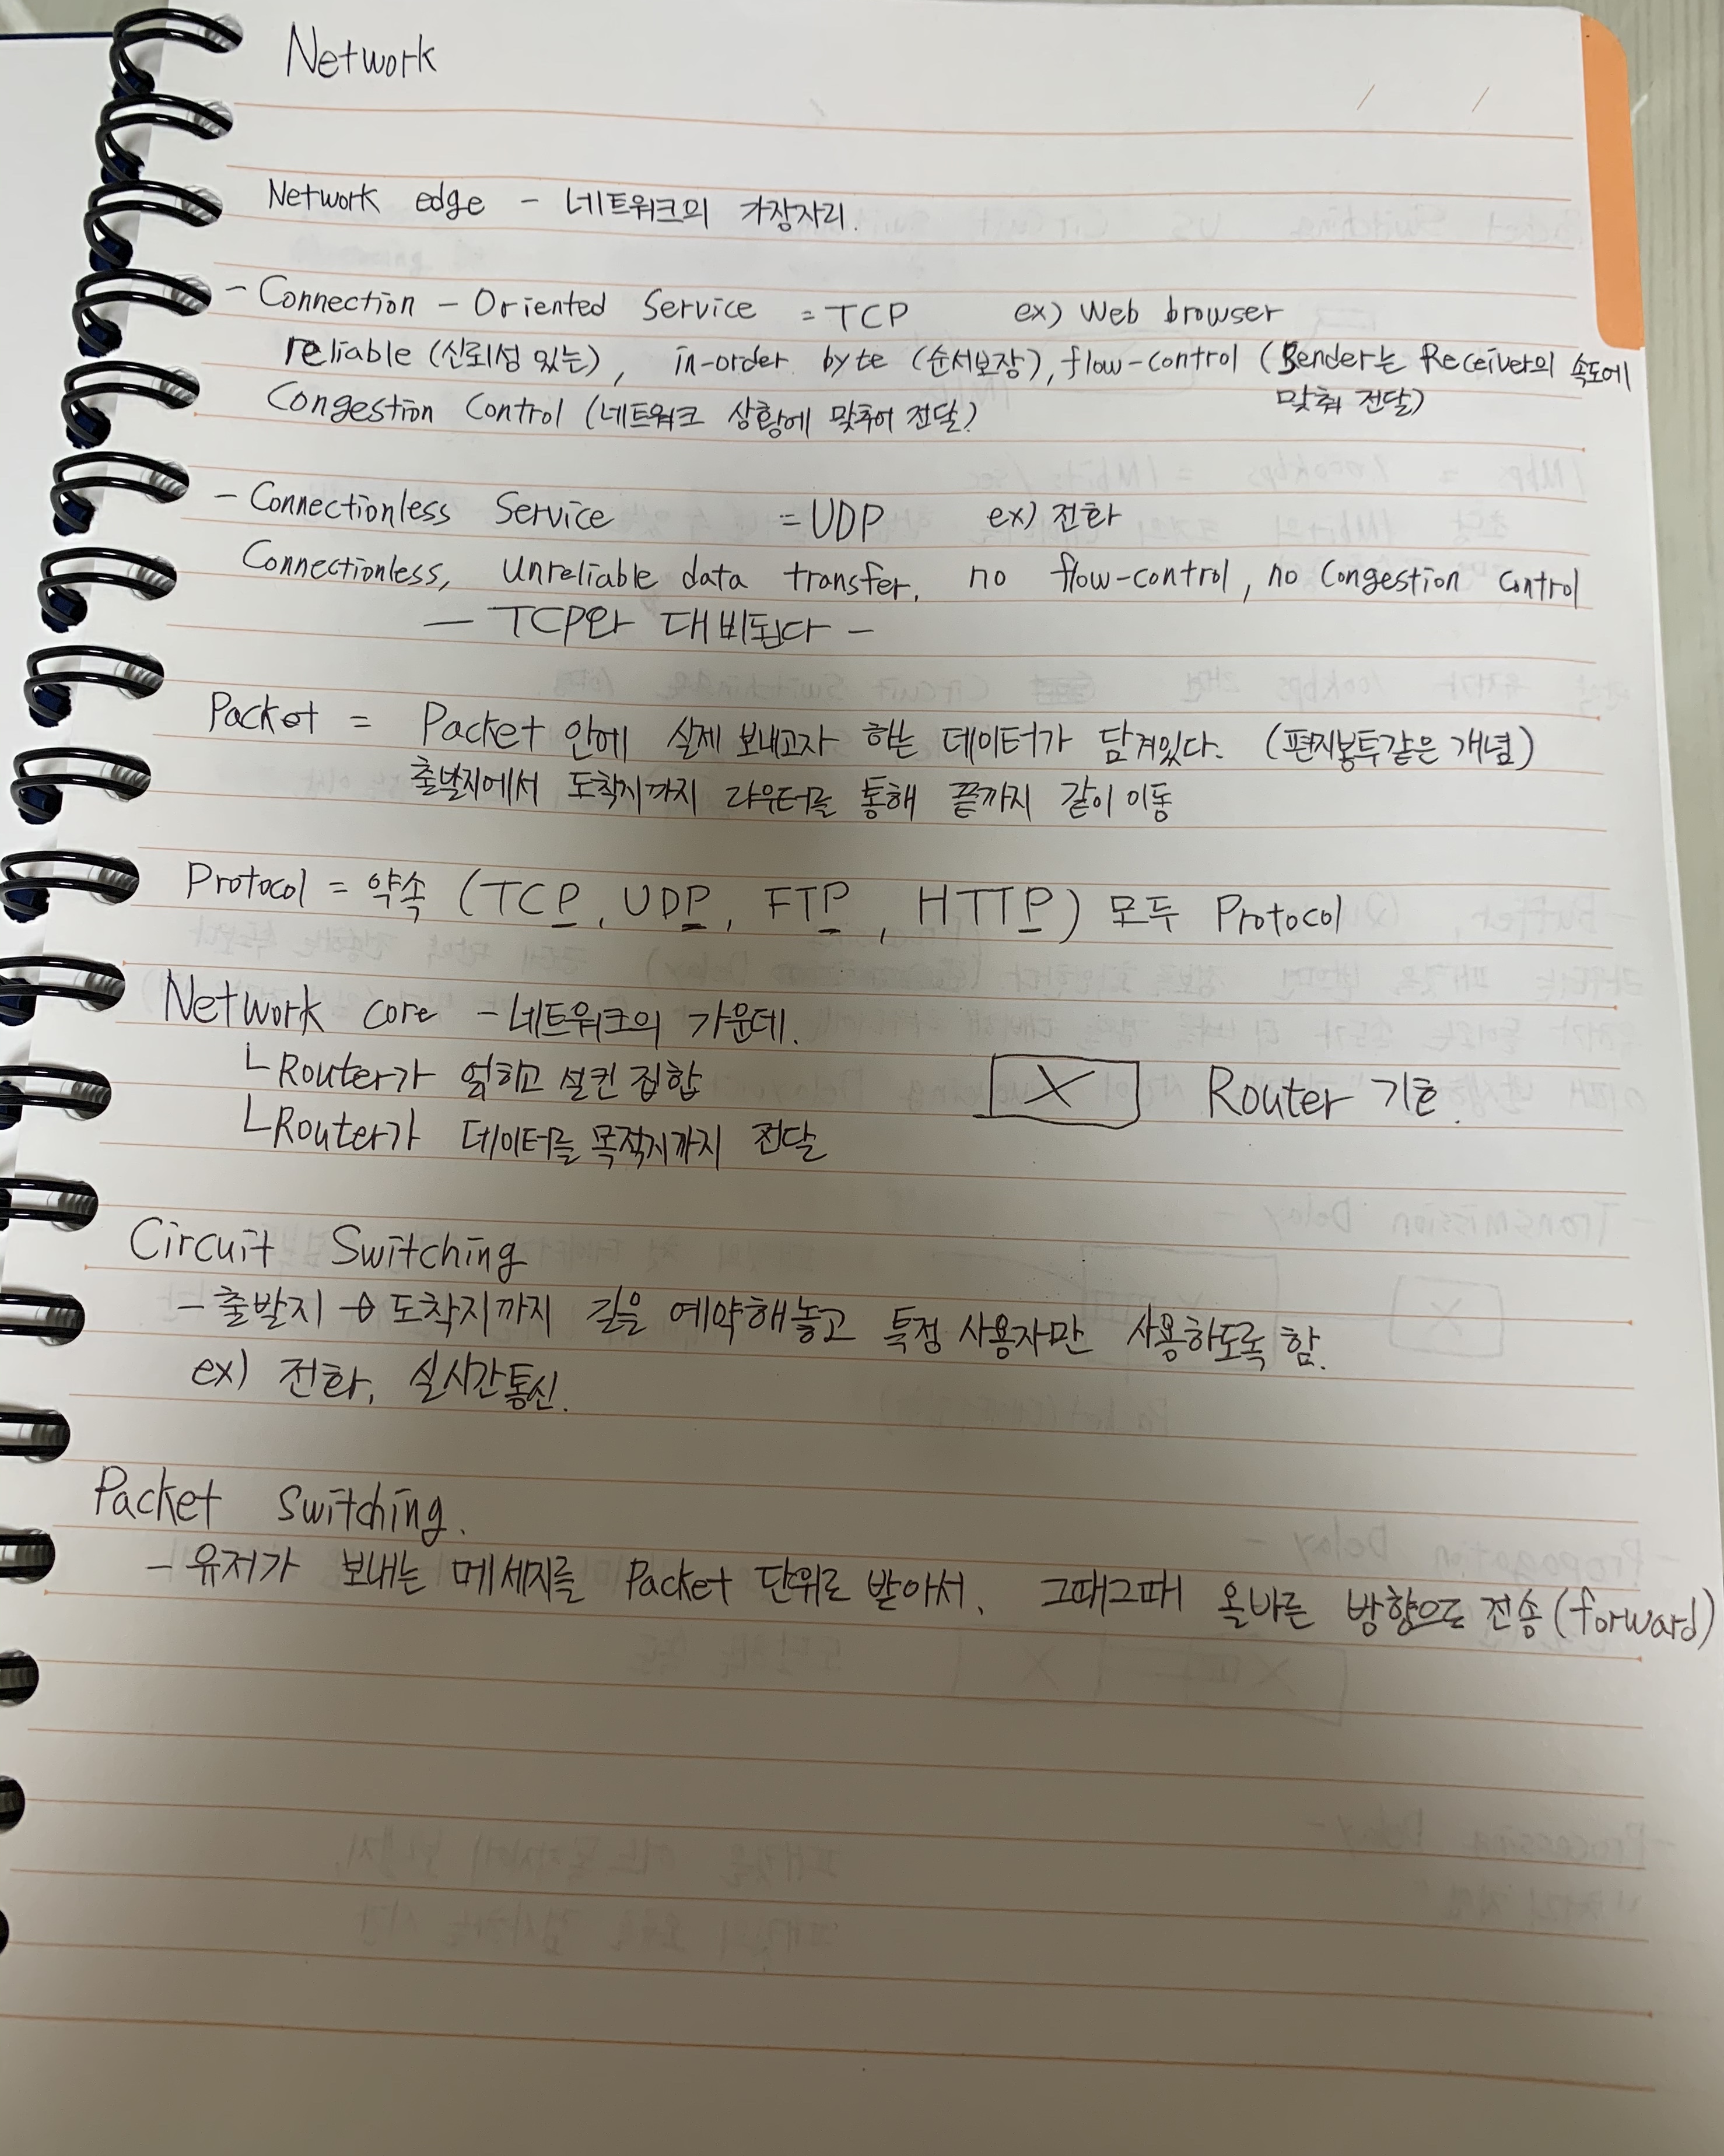 Network
Network edge - 네트워크의 가장자리.
- Connection - Oriented Service = TCP ex) Web browser
reliable (신뢰성 있는), in-order byte (순서보장), flow-control (Sender는 Receiver의 속도에
맞춰 전달)
Congestion Control (네트워크 상황에 맞추어 전달)
- Connectionless Service = UDP ex) 전화
Connectionless, unreliable data transfer, no flow-control, no Congestion control
- TCP와 대비된다 -
Packet = Packet 안에 실제 보내고자 하는 데이터가 담겨있다. (편지봉투같은 개념)
출발지에서 도착지까지 라우터를 통해 끝까지 같이 이동
Protocol = 약속 (TCP, UDP, FTP, HTTP) 모두 Protocol
Network core - 네트워크의 가운데.
└ Router가 얽히고 설킨 집합
X Router 기호.
└ Router가 데이터를 목적지까지 전달
Circuit Switching
- 출발지 → 도착지까지 길을 예약해놓고 특정 사용자만 사용하도록 함.
ex) 전화, 실시간통신.
Packet Switching.
- 유저가 보내는 메세지를 Packet 단위로 받아서, 그때그때 올바른 방향으로 전송 (forward)